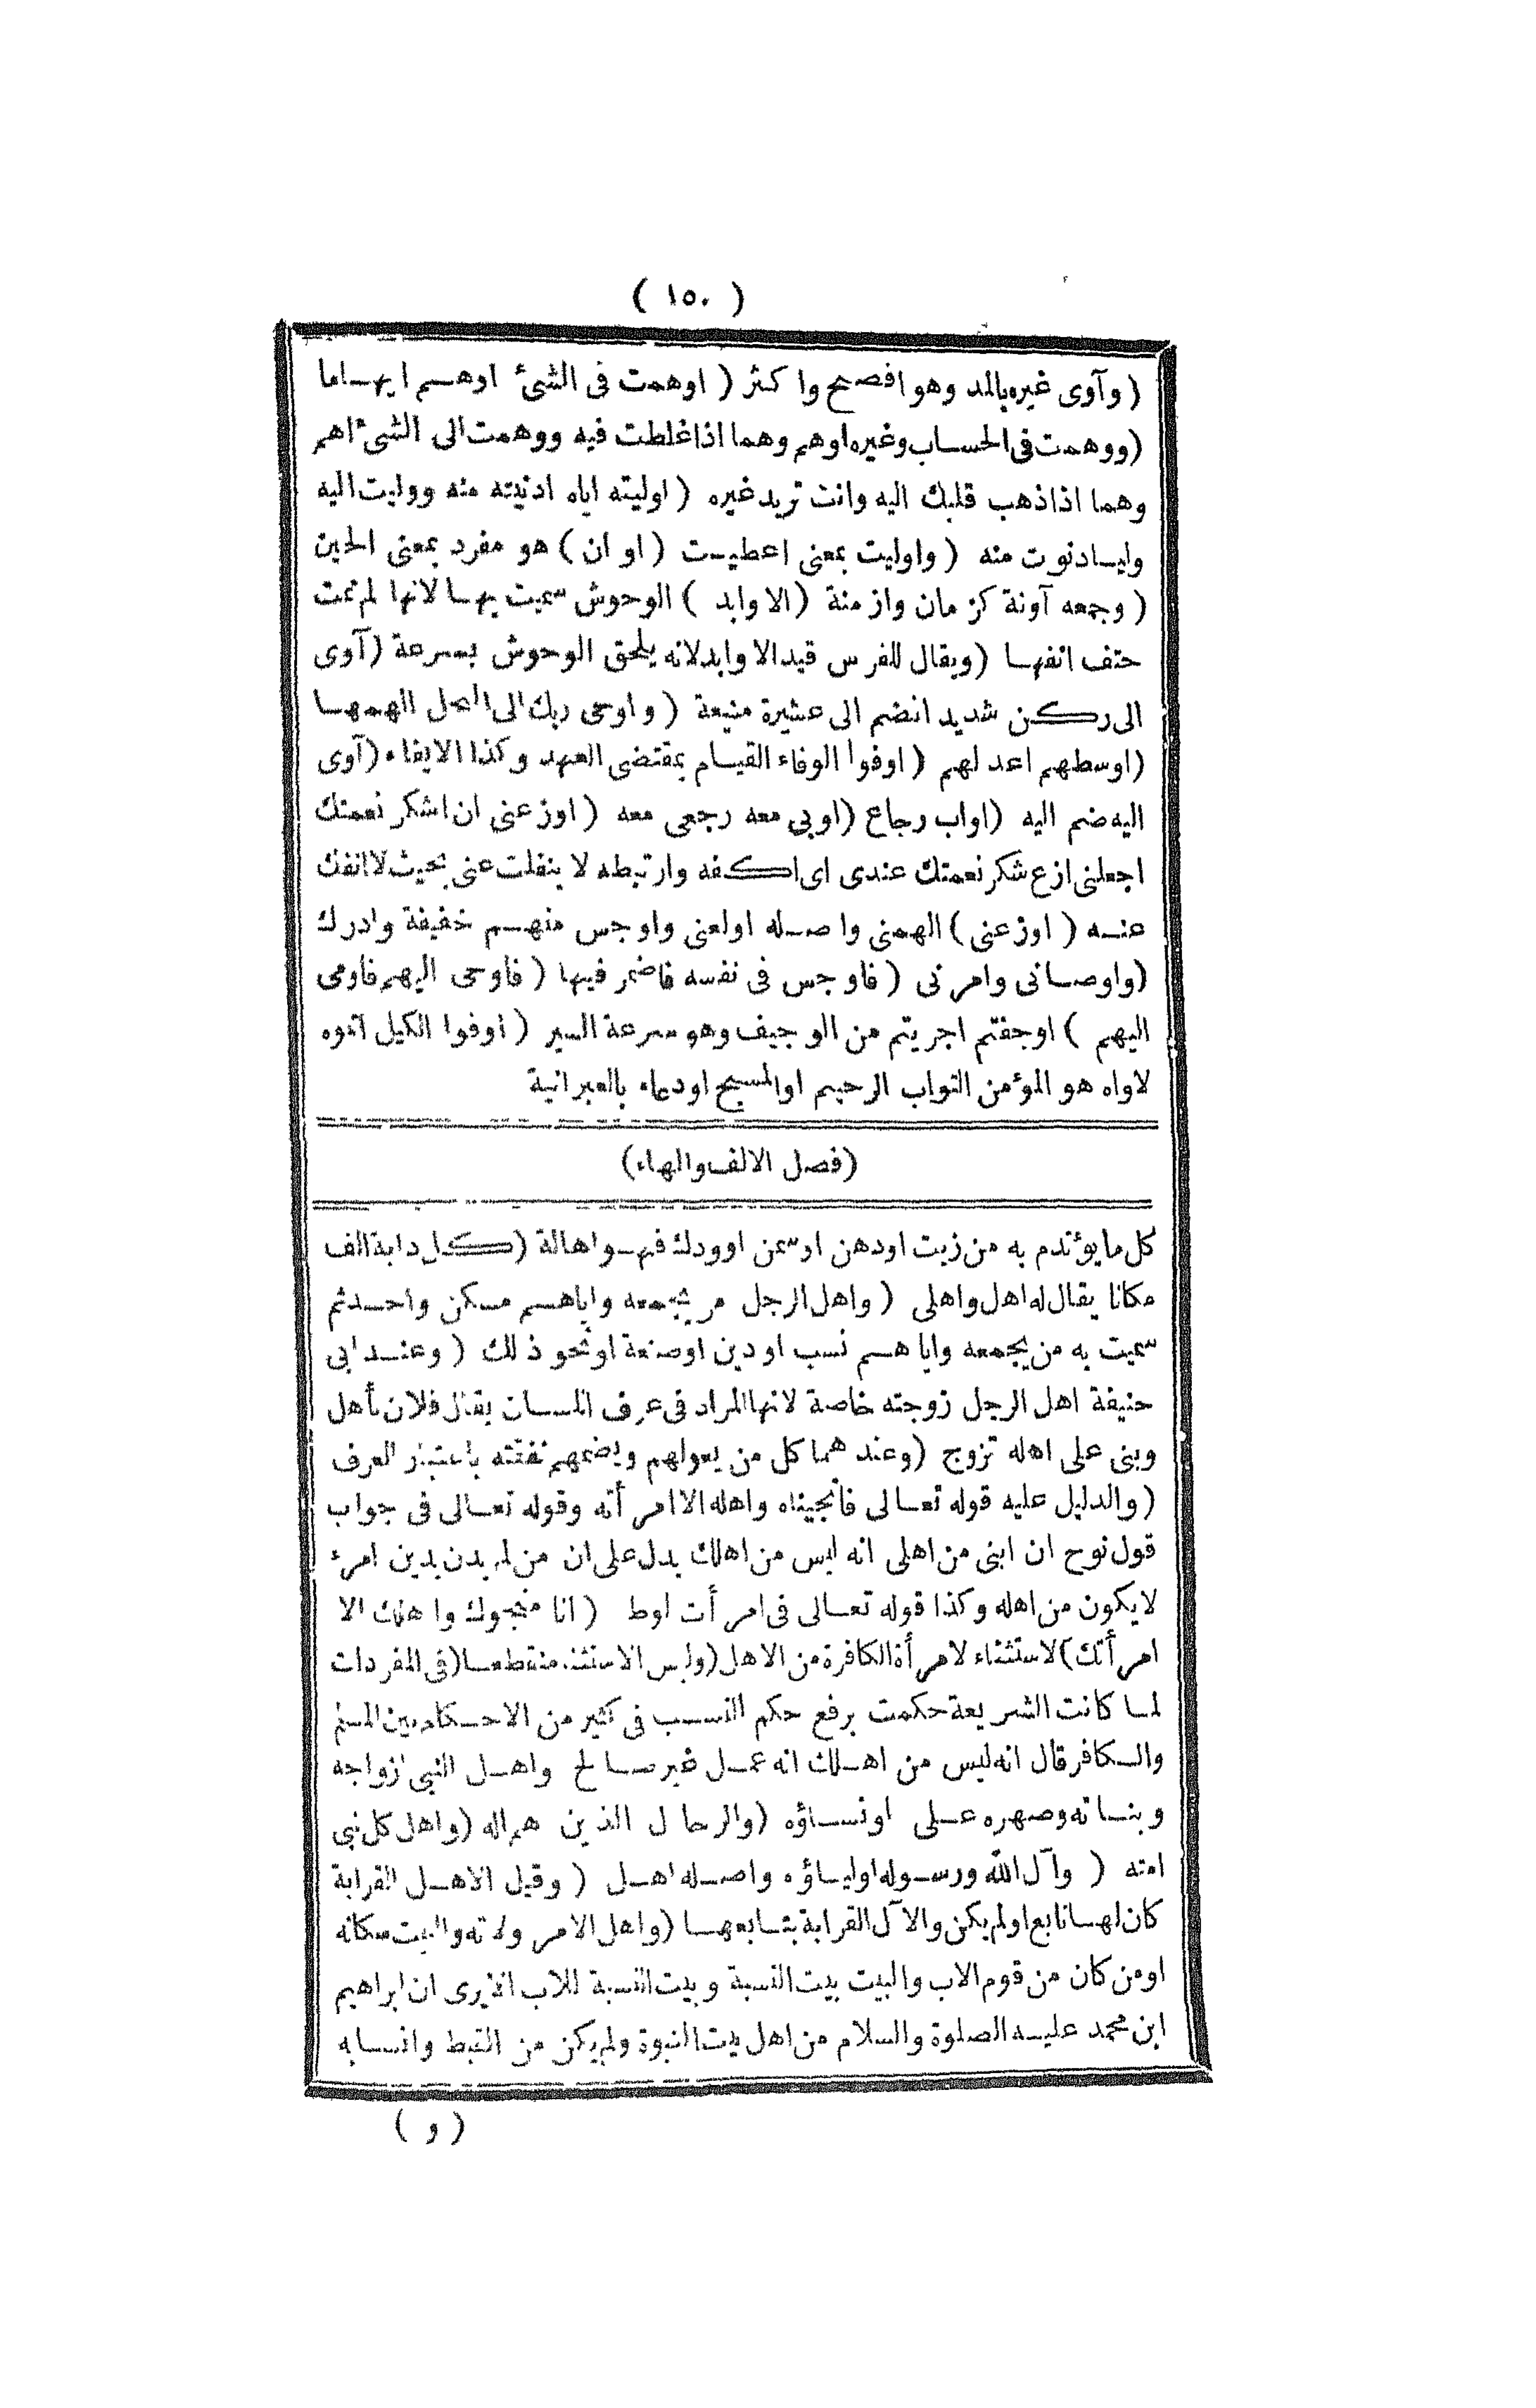 ( ١٥٠ )
(وآوى غيره بالمد وهو افصح واكثر (اوهمت فى الشئ اوهم ايهاما
(ووهمت فى الحساب وغيره اوهم وهما اذا غلطت فيه ووهمت الى الشئ اهم
وهما اذا ذهب قلبك اليه وانت تريد غيره (اوليته اياه ادنيته منه ووليت اليه
وليا دنوت منه (واوليت بمعنى اعطيت (اوان) هو مفرد بمعنى الحين
(وجمعه آونة كزمان وازمنة (الاوابد) الوحوش سميت بها لانها لم تمت
حتف انفها (ويقال للفرس قيد الاوابد لانه يلحق الوحوش بسرعة (آوى
الى ركن شديد انضم الى عشيرة منيعة (واوحى ربك الى النحل الهمها
(اوسطهم اعدلهم (اوفوا الوفاء القيام بمقتضى العهد وكذا الايفاء (آوى
اليه ضم اليه (اواب رجاع (اوبى معه رجعى معه (اوزعنى ان اشكر نعمتك
اجعلنى ازع شكر نعمتك عندى اى اكفه وارتبطه لا ينفلت عنى بحيث لا انفك
عنه (اوزعنى) الهمنى واصله اولعنى واوجس منهم خفيفة وادرك
(واوصانى وامرنى (فاوجس فى نفسه فاضمر فيها (فاوحى اليهم فاومى
اليهم) اوجفتم اجريتم من الوجيف وهو سرعة السير (اوفوا الكيل اتموه
لاواه هو المؤمن التواب الرحيم او المسبح او دعاء بالعبرانية
(فصل الالف والهاء)
كل ما يؤتدم به من زيت او دهن او سمن او ودك فهو اهالة (كل دابة الف
مكانا يقال له اهل واهلى (واهل الرجل من يجمعه واياهم مسكن واحد ثم
سميت به من يجمعه واياهم نسب او دين او صنعة او نحو ذلك (وعند ابى
حنيفة اهل الرجل زوجته خاصة لانها المراد فى عرف اللسان يقال فلان تأهل
وبنى على اهله تزوج (وعندهما كل من يعولهم ويضمهم نفقته باعتبار العرف
(والدليل عليه قوله تعالى فأنجيناه واهله الا امرأته وقوله تعالى فى جواب
قول نوح ان ابنى من اهلى انه ليس من اهلك يدل على ان من لم يدن بدين امرء
لا يكون من اهله وكذا قوله تعالى فى امرأت لوط (انا منجوك واهلك الا
امرأتك) لاستثناء لامرأة الكافرة من الاهل (وليس الاستثناء منقطعا (فى المفردات
لما كانت الشريعة حكمت برفع حكم النسب فى كثير من الاحكام بين المسلم
والكافر قال انه ليس من اهلك انه عمل غير صالح واهل النبى ازواجه
وبناته وصهره على او نساؤه (والرجال الذين هم اله (واهل كل نبى
امته (وآل الله ورسوله اولياؤه واصله اهل (وقيل الاهل القرابة
كان لها تابع او لم يكن والآل القرابة بتابعها (واهل الامر ولاته والبيت سكانه
او من كان من قوم الاب والبيت بيت النسبة وبيت النسبة للاب الايرى ان ابراهيم
ابن محمد عليه الصلوة والسلام من اهل بيت النبوة ولم يكن من القبط وانسابه
( و )